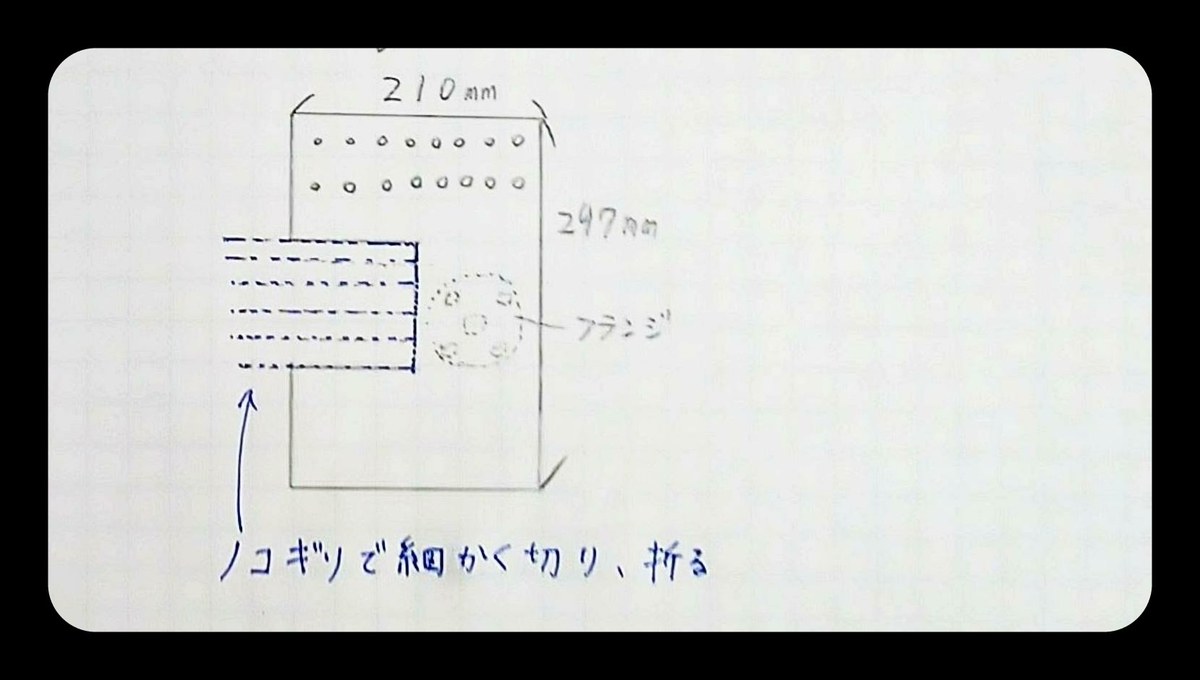 210mm
297mm
フランジ
ノコギリで細かく切り、折る